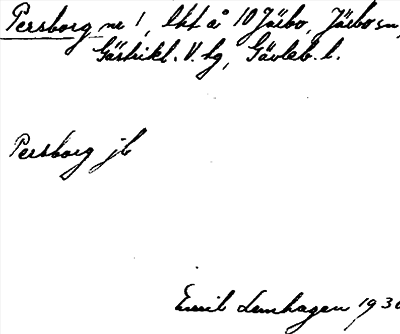 Persborg nr 1, lht å 10 Järbo, Järbo sn,
Gästrikl. V. hg, Gävleb. l.
Persborg jb
Emil Lemhagen 193